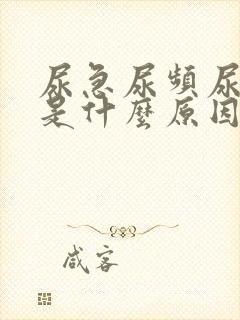 尿急尿頻尿
是什麼原因
咸客